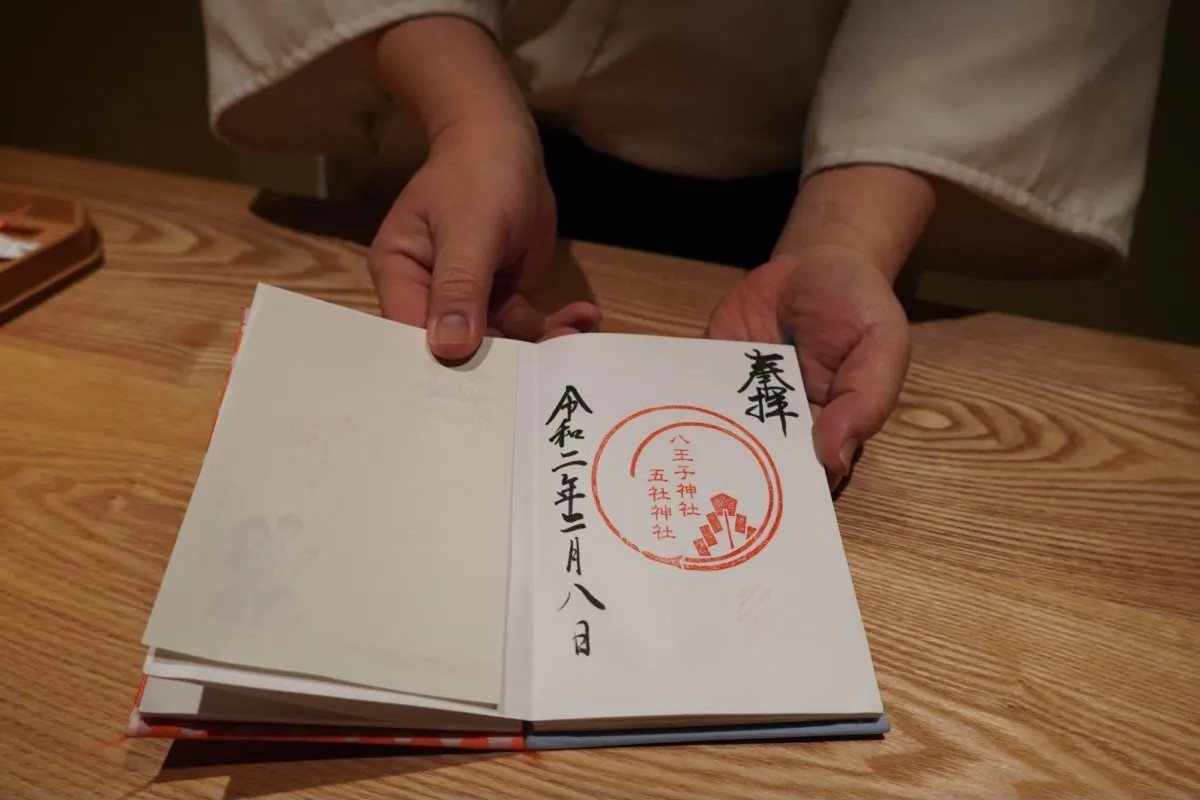 奉拝
八王子神社
五社神社
令和二年二月八日